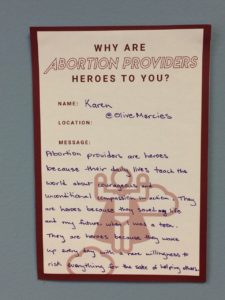 WHY ARE
ABORTION PROVIDERS
HEROES TO YOU?
NAME: Karen
@Olive.Mercies
LOCATION:
MESSAGE:
Abortion providers are heroes
because their daily lives teach the
world about courageous and
unconditional compassion in action. They
are heroes because they saved my life
and my future when I was a teen.
They are heroes because they wake
up every day with a rare willingness to
risk everything for the sake of helping others.